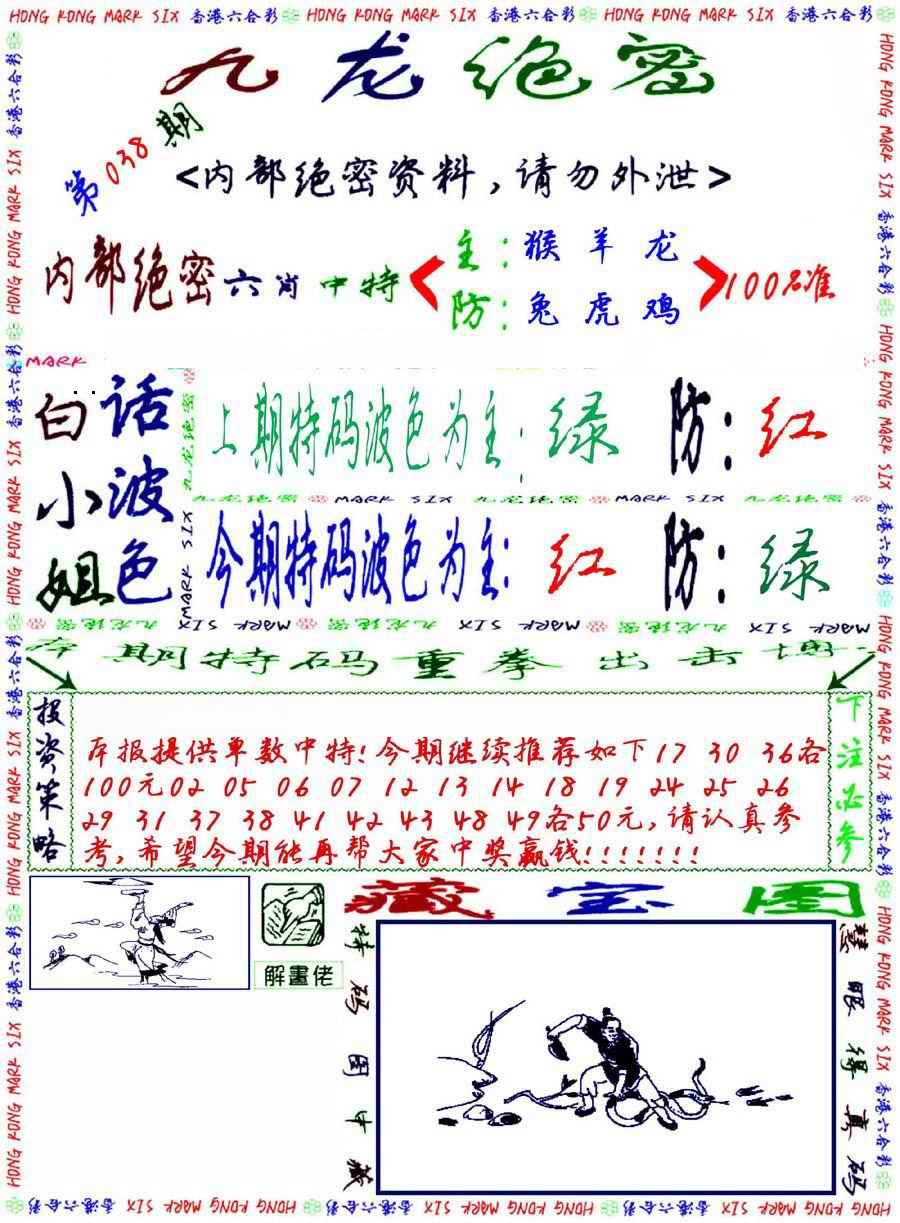 HONG KONG MARK SIX 香港六合彩 HONG KONG MARK SIX 香港六合彩 HONG KONG MARK SIX 香港六合彩 HONG KONG MARK SIX 香港六合彩
九龙绝密
第038期
<内部绝密资料,请勿外泄>
内部绝密六肖中特
主:猴羊龙
防:兔虎鸡
100%准
MARK
白话
小波
姐色
上期特码波色为主:绿 防:红
九龙绝密 MARK SIX 九龙绝密 MARK SIX 九龙绝密
今期特码波色为主:红 防:绿
九龙绝密 MARK SIX
本期特码重拳出击博
投资策略
本报提供单数中特!今期继续推荐如下17 30 36各
100元02 05 06 07 12 13 14 18 19 24 25 26
29 31 37 38 41 42 43 48 49各50元,请认真参
考,希望今期能再帮大家中奖赢钱!!!!!!!
下注必参
解畫佬
藏宝图
特码图中藏
慧眼得真码